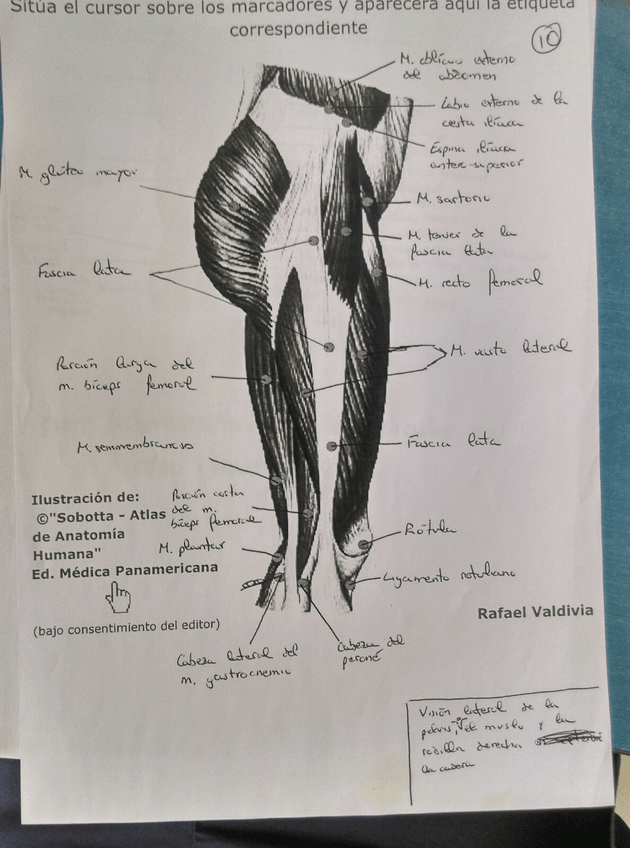 Sitúa el cursor sobre los marcadores y aparecerá aquí la etiqueta
correspondiente
10
M. oblicuo externo
del abdomen
Labio externo de la
cresta ilíaca
Espina ilíaca
antero-superior
M. glúteo mayor
M. sartorio
M. tensor de la
fascia lata
Fascia lata
M. recto femoral
M. vasto lateral
Porción larga del
m. bíceps femoral
Fascia lata
M. semimembranoso
Ilustración de:
©"Sobotta - Atlas
de Anatomía
Humana"
Ed. Médica Panamericana
(bajo consentimiento del editor)
Porción corta
del m.
bíceps femoral
M. plantar
Rótula
Ligamento rotuliano
Rafael Valdivia
Cabeza lateral del
m. gastrocnemio
Cabeza del
peroné
Visión lateral de la
pelvis, del muslo y la
rodilla derecha
la cadera